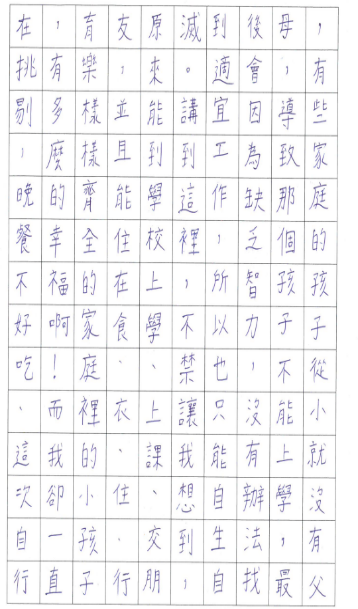 ，有些家庭的孩子從小就沒有父
母，導致那個孩子不能上學，最
後會因為缺乏智力，沒有辦法找
到適宜工作，所以也只能自生自
滅。講到這裡，不禁讓我想到，
原來能到學校上學、上課、交朋
友，並且能住在食、衣、住、行
育樂樣樣齊全的家庭裡的小孩子
，有多麼的幸福啊！而我卻一直
在挑剔，晚餐不好吃、這次自行